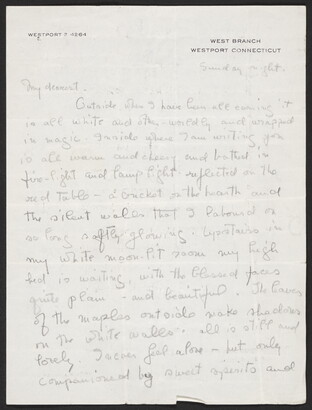 WESTPORT 7-4864
WEST BRANCH
WESTPORT CONNECTICUT
Sunday night.
My dearest.
Outside when I have been all evening it
is all white and other-worldly and wrapped
in magic. Inside where I am writing you
is all warm and cheery and bathed in
fire-light and lamp light reflected on the
red table - a cricket on the hearth and
the silent walls that I labored on
so long softly glowing. Upstairs in
my white moon-lit room my high
bed is waiting, with the blessed faces
quite plain - and beautiful. The leaves
of the maples outside make shadows
on the white walls. All is still and
lovely. I never feel alone - but only
companioned by sweet spirits and